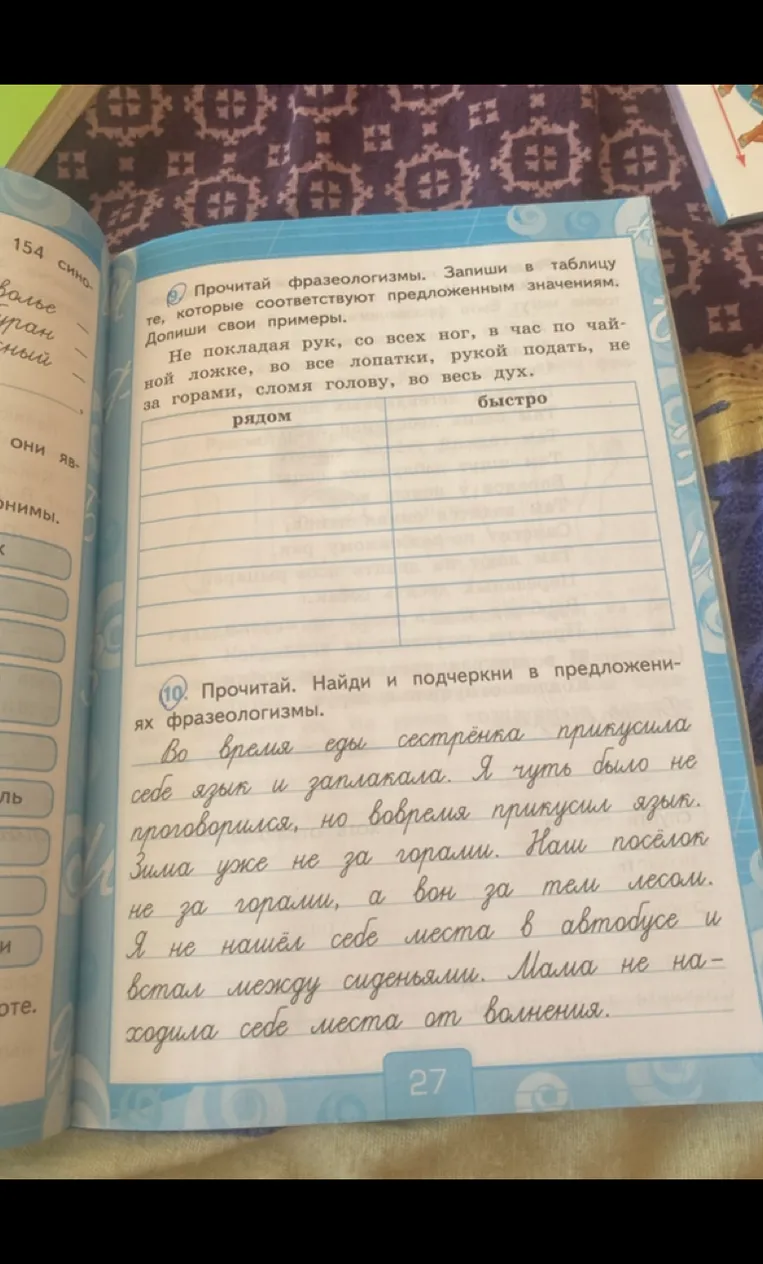 154 сино-
волье —
буран —
сный —
они яв-
онимы.
к
ль
и
оте.
9. Прочитай фразеологизмы. Запиши в таблицу
те, которые соответствуют предложенным значениям.
Допиши свои примеры.
Не покладая рук, со всех ног, в час по чай-
ной ложке, во все лопатки, рукой подать, не
за горами, сломя голову, во весь дух.
рядом быстро
10. Прочитай. Найди и подчеркни в предложени-
ях фразеологизмы.
Во время еды сестрёнка прикусила
себе язык и заплакала. Я чуть было не
проговорился, но вовремя прикусил язык.
Зима уже не за горами. Наш посёлок
не за горами, а вон за тем лесом.
Я не нашёл себе места в автобусе и
встал между сиденьями. Мама не на-
ходила себе места от волнения.
27